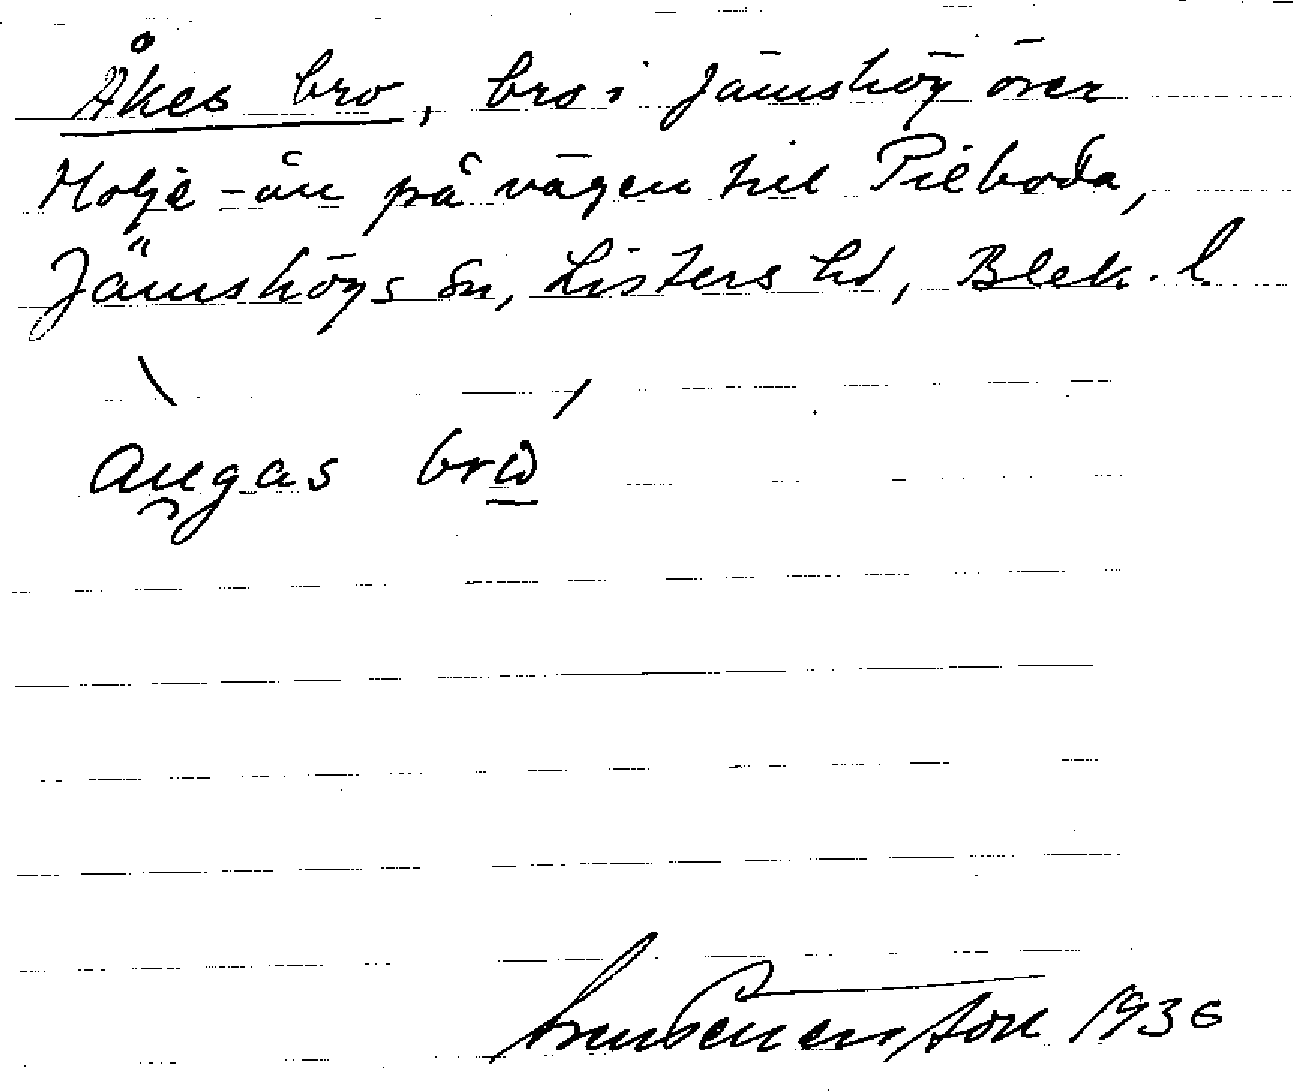 Åkes bro, bro i Jämshög över
Holje-ån på vägen till Pieboda,
Jämshögs sn, Listers hd, Blek. l.
augas bro
1936